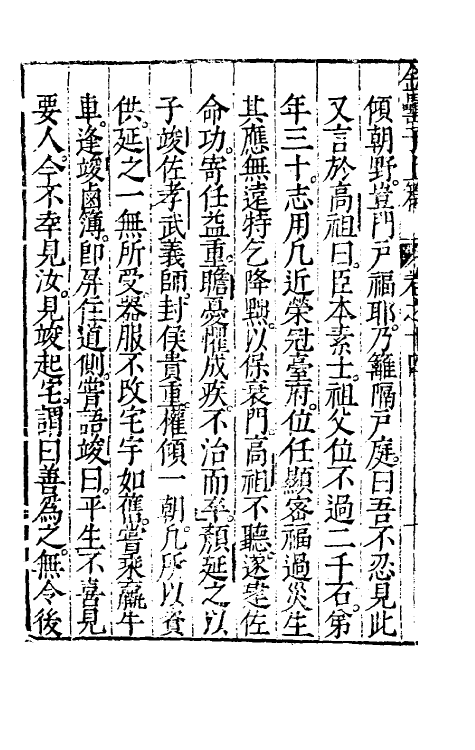 傾朝野。豈門戸福耶。乃籬隔戸庭。曰吾不忍見此
又言於高祖曰。臣本素士。祖父位不過二千石。弟
年三十。志用凡近。榮冠臺府。位任顯密。福過災生
其應無遠。特乞降黜。以保衰門。高祖不聽。遂建佐
命功。寄任益重。瞻憂懼成疾。不治而卒。顔延之以
子竣佐孝武義師。封侯貴重。權傾一朝。凡所以資
供。延之一無所受。器服不改。宅宇如舊。嘗乘羸牛
車。逢竣鹵簿。即屏住道側。嘗語竣曰。平生不喜見
要人。今不幸見汝。見竣起宅。謂曰善爲之。無令後